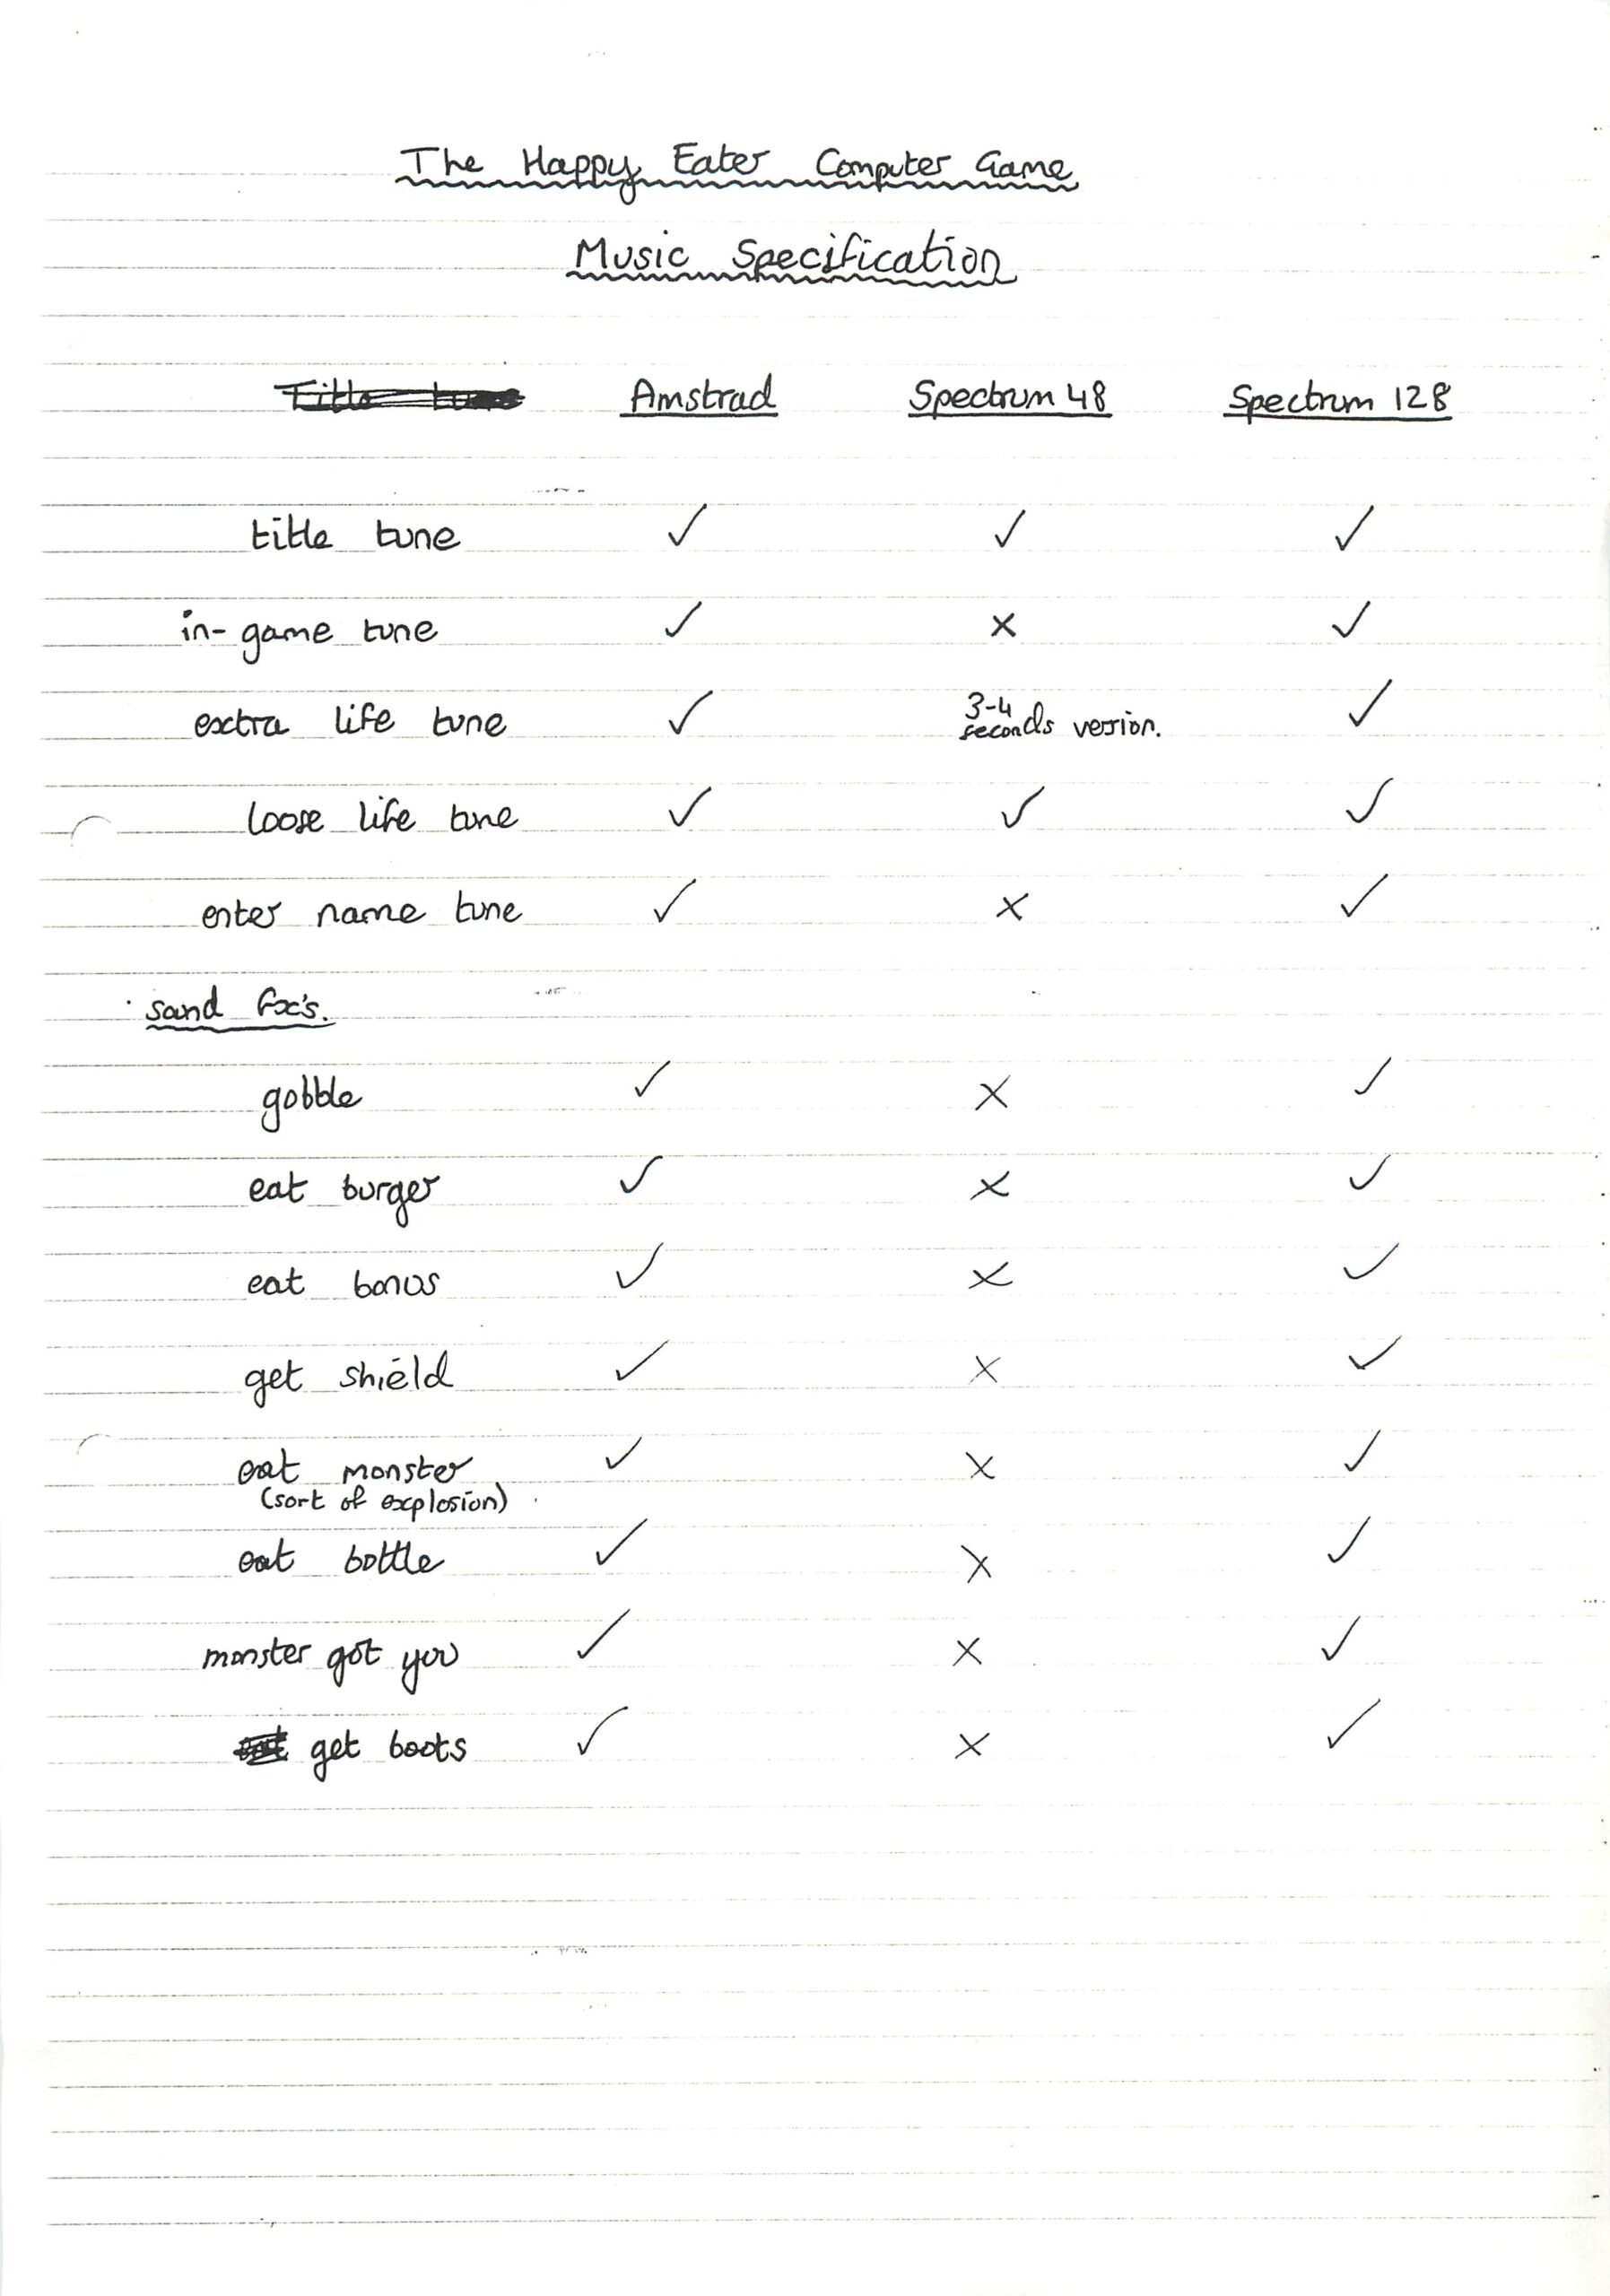 The Happy Eater Computer Game
Music Specification
Title tune Amstrad Spectrum 48 Spectrum 128
title tune ✓ ✓ ✓
in-game tune ✓ × ✓
extra life tune ✓ 3-4 seconds version. ✓
loose life tune ✓ ✓ ✓
enter name tune ✓ × ✓
sound fx's.
gobble ✓ × ✓
eat burger ✓ × ✓
eat bonus ✓ × ✓
get shield ✓ × ✓
eat monster ✓ × ✓
(sort of explosion)
eat bottle ✓ × ✓
monster got you ✓ × ✓
get boots ✓ × ✓